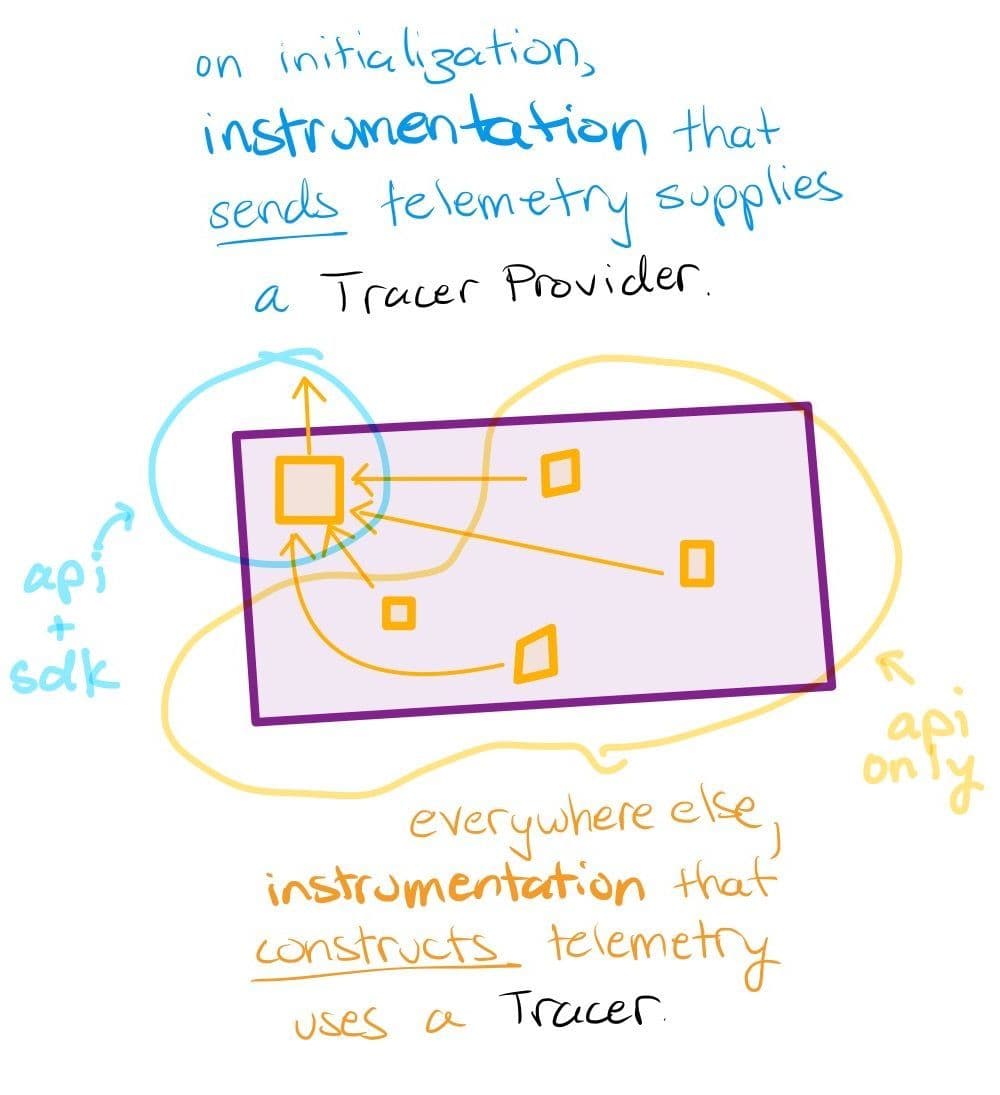 on initialization,
instrumentation that
sends telemetry supplies
a Tracer Provider.
api
+
sdk
api
only
everywhere else,
instrumentation that
constructs telemetry
uses a Tracer.